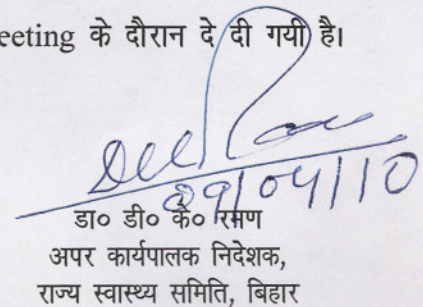 eeting के दौरान दे दी गयी है।
09/04/10
डा० डी० के० रमण
अपर कार्यपालक निदेशक,
राज्य स्वास्थ्य समिति, बिहार